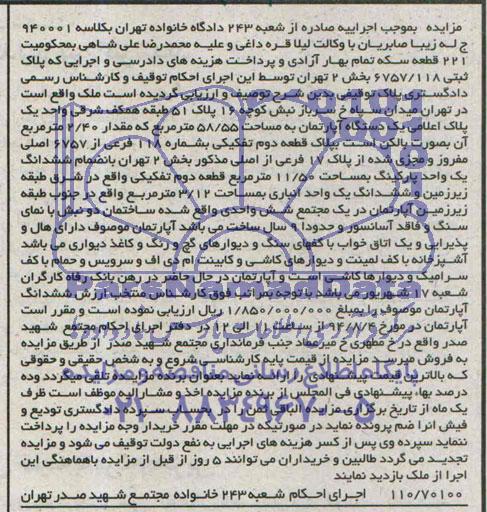 مزایده بموجب اجراییه صادره از شعبه ۲۴۳ دادگاه خانواده تهران بکلاسه ۹۴۰۰۰۱
ج له زیبا صابریان با وکالت لیلا قره داغی و علیه محمدرضا علی شاهی بمحکومیت
۲۲۱ قطعه سکه تمام بهار آزادی و پرداخت هزینه های دادرسی و اجرایی که پلاک
ثبتی ۶۷۵۷/۱۱۸ بخش ۲ تهران توسط این اجرای احکام توقیف و کارشناس رسمی
دادگستری پلاک توقیفی بدین شرح توصیف و ارزیابی گردیده است ملک واقع است
در تهران میدان سپاه خ سرباز نبش کوچه ۱۶ پلاک ۵۱ طبقه همکف شرقی واحد یک
پلاک اعلامی یک دستگاه آپارتمان به مساحت ۵۸/۵۵ مترمربع که مقدار ۲/۴۰ مترمربع
آن بصورت بالکن است پلاک قطعه دوم تفکیکی بشماره ۱۱۸ فرعی از ۶۷۵۷ اصلی
مفروز و مجزی شده از پلاک ۱۷ فرعی از اصلی مذکور بخش ۲ تهران بانضمام ششدانگ
یک واحد پارکینگ بمساحت ۱۱/۵۰ مترمربع قطعه دوم تفکیکی واقع در شرق طبقه
زیرزمین و ششدانگ یک واحد انباری بمساحت ۳/۱۲ مترمربع واقع در جنوب طبقه
زیرزمین آپارتمان در یک مجتمع شش واحدی واقع شده ساختمان دو نبش با نمای
سنگ و فاقد آسانسور و حدودا سال ساخت می باشد آپارتمان موصوف دارای هال و
پذیرایی و یک اتاق خواب با کفهای سنگ و دیوارهای گچ و رنگ و کاغذ دیواری می باشد
آشپزخانه با کف لمینت و دیوارهای کاشی و کابینت ام دی اف و سرویس و حمام با کف
سرامیک و دیوارها کاشی است و آپارتمان در حال حاضر در رهن بانک رفاه کارگران
شعبه ۱۷ شهریور می باشد با توجه بمراتب فوق کارشناس منتخب ارزش ششدانگ
آپارتمان موصوف را بمبلغ ۱/۸۵۰/۰۰۰/۰۰۰ ریال ارزیابی نموده است و مقرر است
آپارتمان در مورخ ۹۴/۷/۲۵ از ساعت ۱۱ الی ۱۲ در دفتر اجرای احکام مجتمع شهید
صدر واقع در خ مطهری خ میرعماد جنب فرمانداری مجتمع شهید صدر از طریق مزایده
به فروش میرسد مزایده از قیمت پایه کارشناسی شروع و به شخص حقیقی و حقوقی
که بالاترین قیمت پیشنهادی را ارائه نماید بعنوان برنده مزایده تلقی میگردد و ده
درصد بها، پیشنهادی فی المجلس از برنده مزایده اخذ و مشارالیه موظف است ظرف
یک ماه از تاریخ برگزاری مزایده مابقی ثمن را در بحساب سپرده دادگستری تودیع و
فیش آنرا ضم پرونده نماید در صورتیکه در مهلت مقرر خریدار وجه مزایده را پرداخت
ننماید سپرده وی پس از کسر هزینه های اجرایی به نفع دولت توقیف می شود و مزایده
تجدید می گردد طالبین و خریداران می توانند ۵ روز از قبل از مزایده باهماهنگی این
اجرا از ملک بازدید نمایند
۱۱۰/۷۰۱۰۰ اجرای احکام شعبه ۲۴۳ خانواده مجتمع شهید صدر تهران
ParsNamadData
پایگاه اطلاع رسانی مناقصه و مزایده
۰۲۱-۸۸۳۴۹۶۷۰